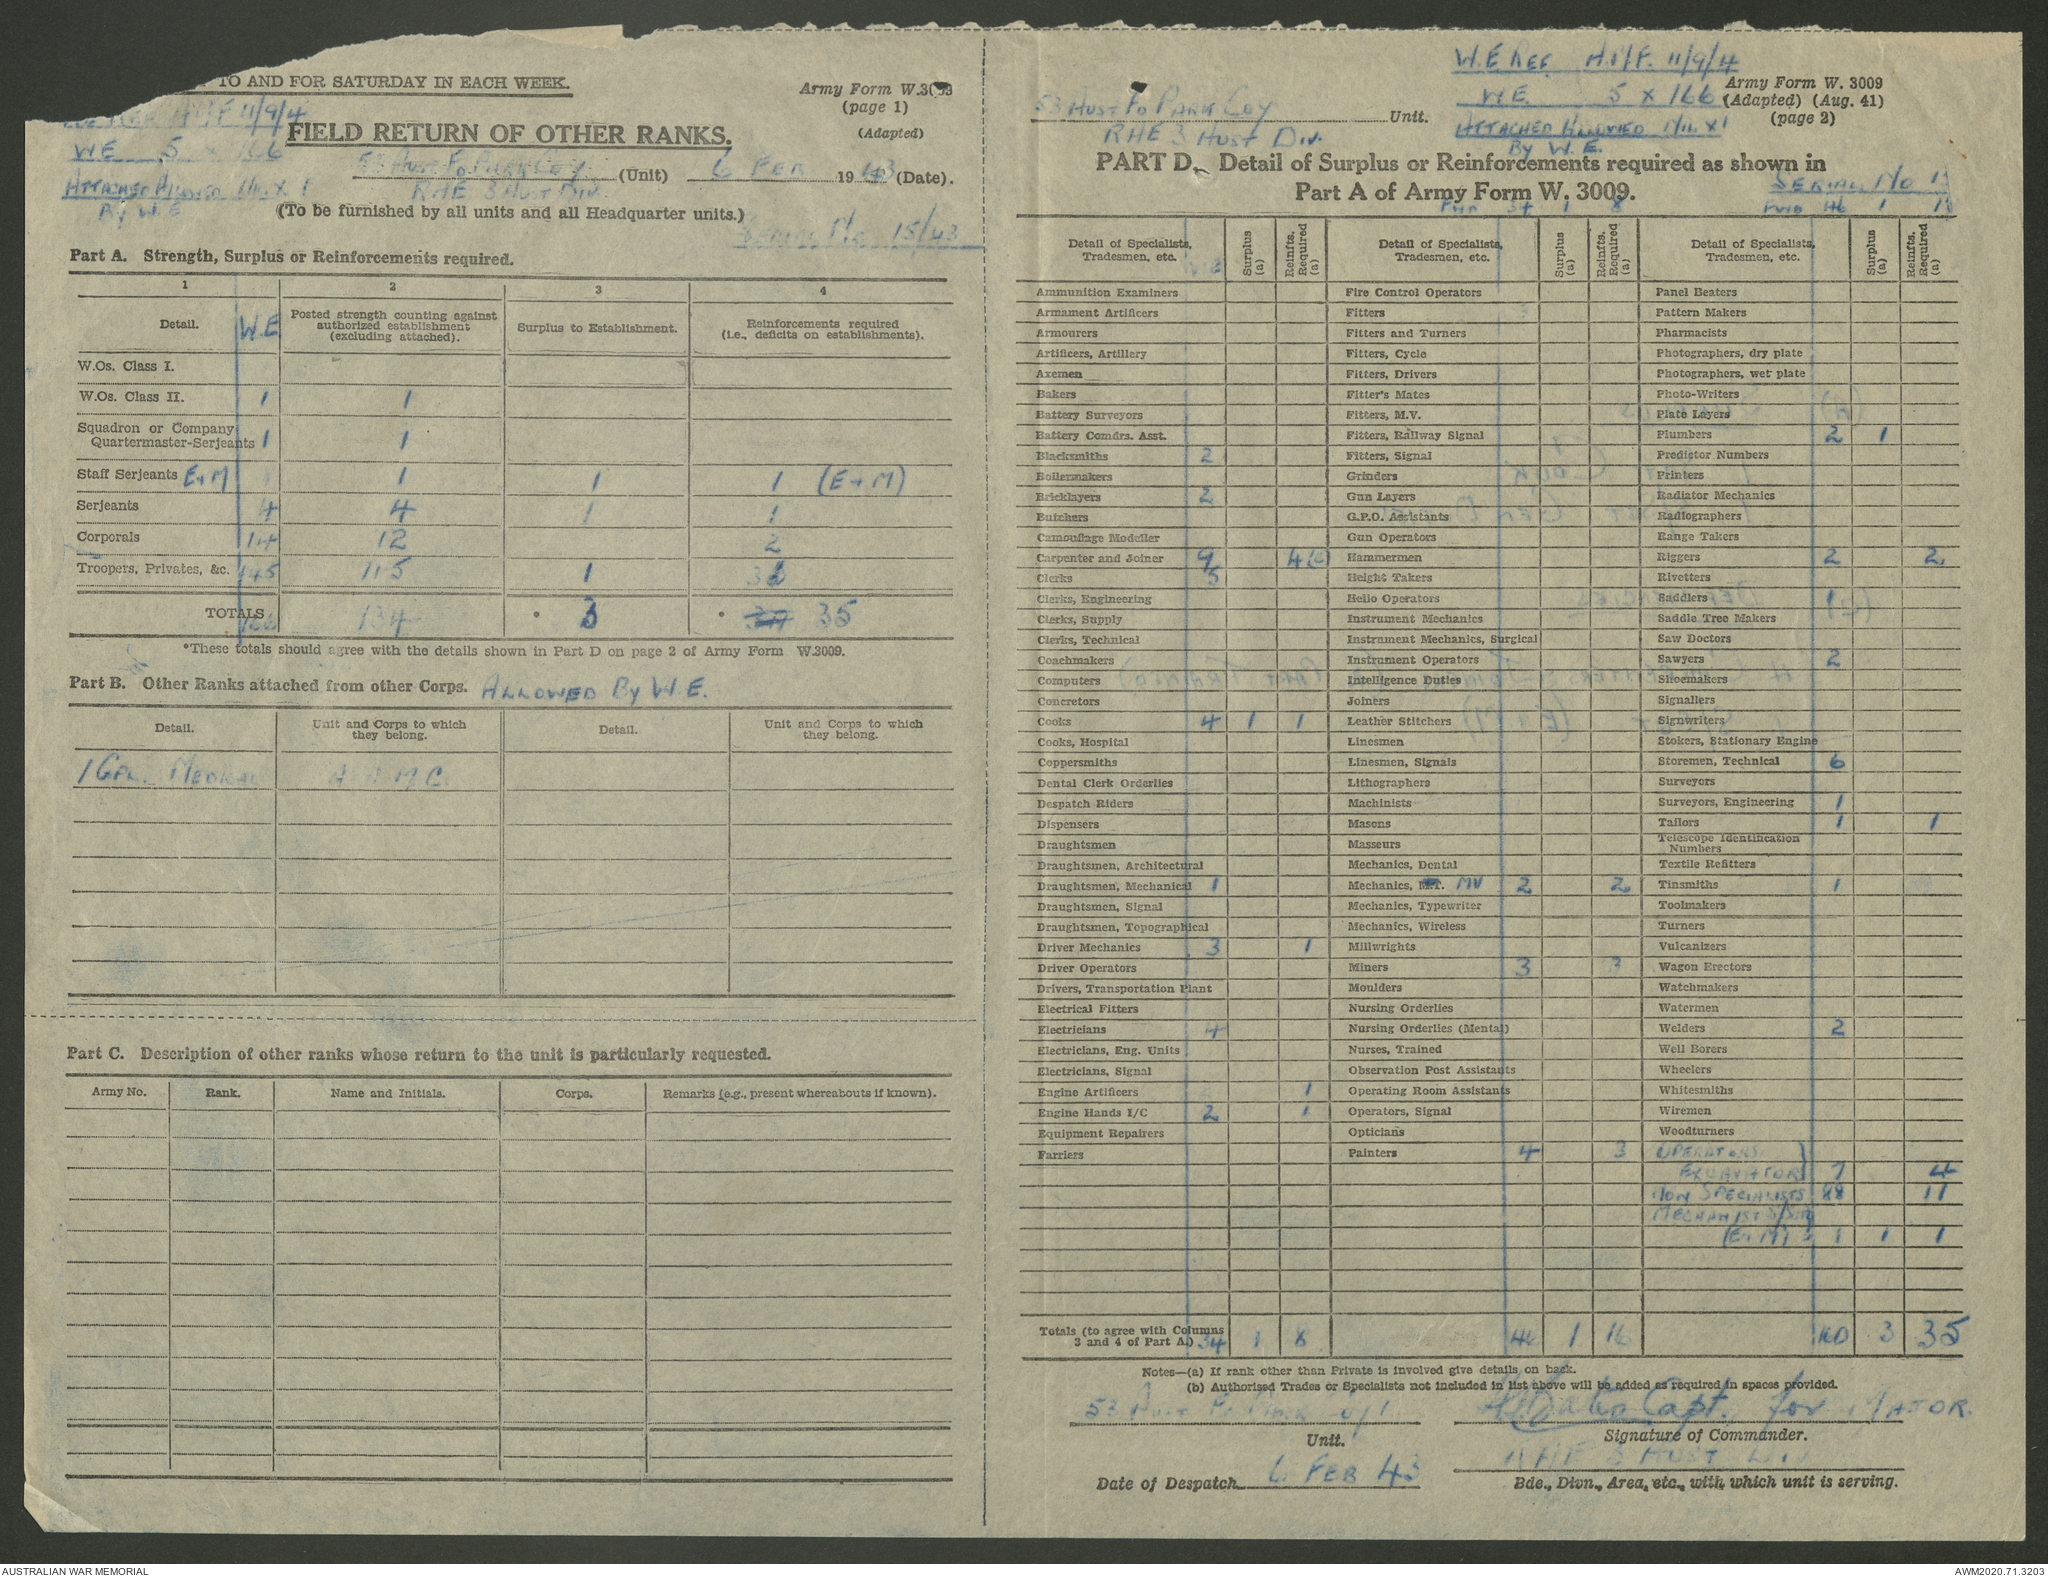 TO AND FOR SATURDAY IN EACH WEEK.
Army Form W.3009
(page 1)
(Adapted)
11/9/4
WE 5 x 166
ATTACHED ALLOWED x 1
By W.E
FIELD RETURN OF OTHER RANKS.
53 AUST FD PARK COY
RAE 3 AUST DIV. (Unit) 6 FEB 1943 (Date).
(To be furnished by all units and all Headquarter units.)
SERIAL No 15/43
Part A. Strength, Surplus or Reinforcements required.
1 2 3 4
Detail. W.E Posted strength counting against authorized establishment (excluding attached). Surplus to Establishment. Reinforcements required (i.e., deficits on establishments).
W.Os. Class I.
W.Os. Class II. 1 1
Squadron or Company Quartermaster-Serjeants 1 1
Staff Serjeants E+M 1 1 1 (E+M)
Serjeants 4 4 1 1
Corporals 14 12 2
Troopers, Privates, &c. 145 115 1
TOTALS 166 134 * 3 * 35
*These totals should agree with the details shown in Part D on page 2 of Army Form W.3009.
Part B. Other Ranks attached from other Corps. ALLOWED By W.E.
Detail. Unit and Corps to which they belong. Detail. Unit and Corps to which they belong.
1 CPL. MEDICAL A.A.M.C.
Part C. Description of other ranks whose return to the unit is particularly requested.
Army No. Rank. Name and Initials. Corps. Remarks (e.g., present whereabouts if known).
W.E REF. A.I.F. 11/9/4
WE. 5 x 166
ATTACHED ALLOWED x 1
By W.E.
Army Form W. 3009
(Adapted) (Aug. 41)
(page 2)
53 AUST FD PARK COY Unit.
RAE 3 AUST DIV.
PART D. Detail of Surplus or Reinforcements required as shown in
Part A of Army Form W. 3009.
SERIAL No
FWD 34 1 8 FWD 46 1 16
Detail of Specialists, Tradesmen, etc. WE Surplus (a) Reinfts. Required (a)
Ammunition Examiners
Armament Artificers
Armourers
Artificers, Artillery
Axemen
Bakers
Battery Surveyors
Battery Comdrs. Asst.
Blacksmiths 2
Boilermakers
Bricklayers 2
Butchers
Camouflage Modeller
Carpenter and Joiner 9 4
Clerks 5
Clerks, Engineering
Clerks, Supply
Clerks, Technical
Coachmakers
Computers
Concretors
Cooks 4 1 1
Cooks, Hospital
Coppersmiths
Dental Clerk Orderlies
Despatch Riders
Dispensers
Draughtsmen
Draughtsmen, Architectural
Draughtsmen, Mechanical 1
Draughtsmen, Signal
Draughtsmen, Topographical
Driver Mechanics 3 1
Driver Operators
Drivers, Transportation Plant
Electrical Fitters
Electricians 4
Electricians, Eng. Units
Electricians, Signal
Engine Artificers 1
Engine Hands I/C 2 1
Equipment Repairers
Farriers
Detail of Specialists, Tradesmen, etc. Surplus (a) Reinfts. Required (a)
Fire Control Operators
Fitters
Fitters and Turners
Fitters, Cycle
Fitters, Drivers
Fitter's Mates
Fitters, M.V.
Fitters, Railway Signal
Fitters, Signal
Grinders
Gun Layers
G.P.O. Assistants
Gun Operators
Hammermen
Height Takers
Helio Operators
Instrument Mechanics
Instrument Mechanics, Surgical
Instrument Operators
Intelligence Duties
Joiners
Leather Stitchers
Linesmen
Linesmen, Signals
Lithographers
Machinists
Masons
Masseurs
Mechanics, Dental
Mechanics, M.T. MV 2 2
Mechanics, Typewriter
Mechanics, Wireless
Millwrights
Miners 3 3
Moulders
Nursing Orderlies
Nursing Orderlies (Mental)
Nurses, Trained
Observation Post Assistants
Operating Room Assistants
Operators, Signal
Opticians
Painters 4 3
Detail of Specialists, Tradesmen, etc. Surplus (a) Reinfts. Required (a)
Panel Beaters
Pattern Makers
Pharmacists
Photographers, dry plate
Photographers, wet plate
Photo-Writers
Plate Layers
Plumbers 2 1
Predictor Numbers
Printers
Radiator Mechanics
Radiographers
Range Takers
Riggers 2 2
Rivetters
Saddlers 1
Saddle Tree Makers
Saw Doctors
Sawyers 2
Shoemakers
Signallers
Signwriters
Stokers, Stationary Engine
Storemen, Technical 6
Surveyors
Surveyors, Engineering 1
Tailors 1 1
Telescope Identification Numbers
Textile Refitters
Tinsmiths 1
Toolmakers
Turners
Vulcanizers
Wagon Erectors
Watchmakers
Watermen
Welders 2
Well Borers
Wheelers
Whitesmiths
Wiremen
Woodturners
OPERATORS
EXCAVATOR 7 4
NON SPECIALISTS 88 11
MECHANIST S/Sjt
(E+M) 1 1 1
Totals (to agree with Columns 3 and 4 of Part A.) 34 1 8 46 1 16 3 35
Notes—(a) If rank other than Private is involved give details on back.
(b) Authorised Trades or Specialists not included in list above will be added as required in spaces provided.
53 AUST FD PARK COY
Unit.
Capt. for MAJOR.
Signature of Commander.
Date of Despatch 6 FEB 43
RAE 3 AUST DIV
Bde., Divn., Area, etc., with which unit is serving.
AUSTRALIAN WAR MEMORIAL
AWM2020.71.3203